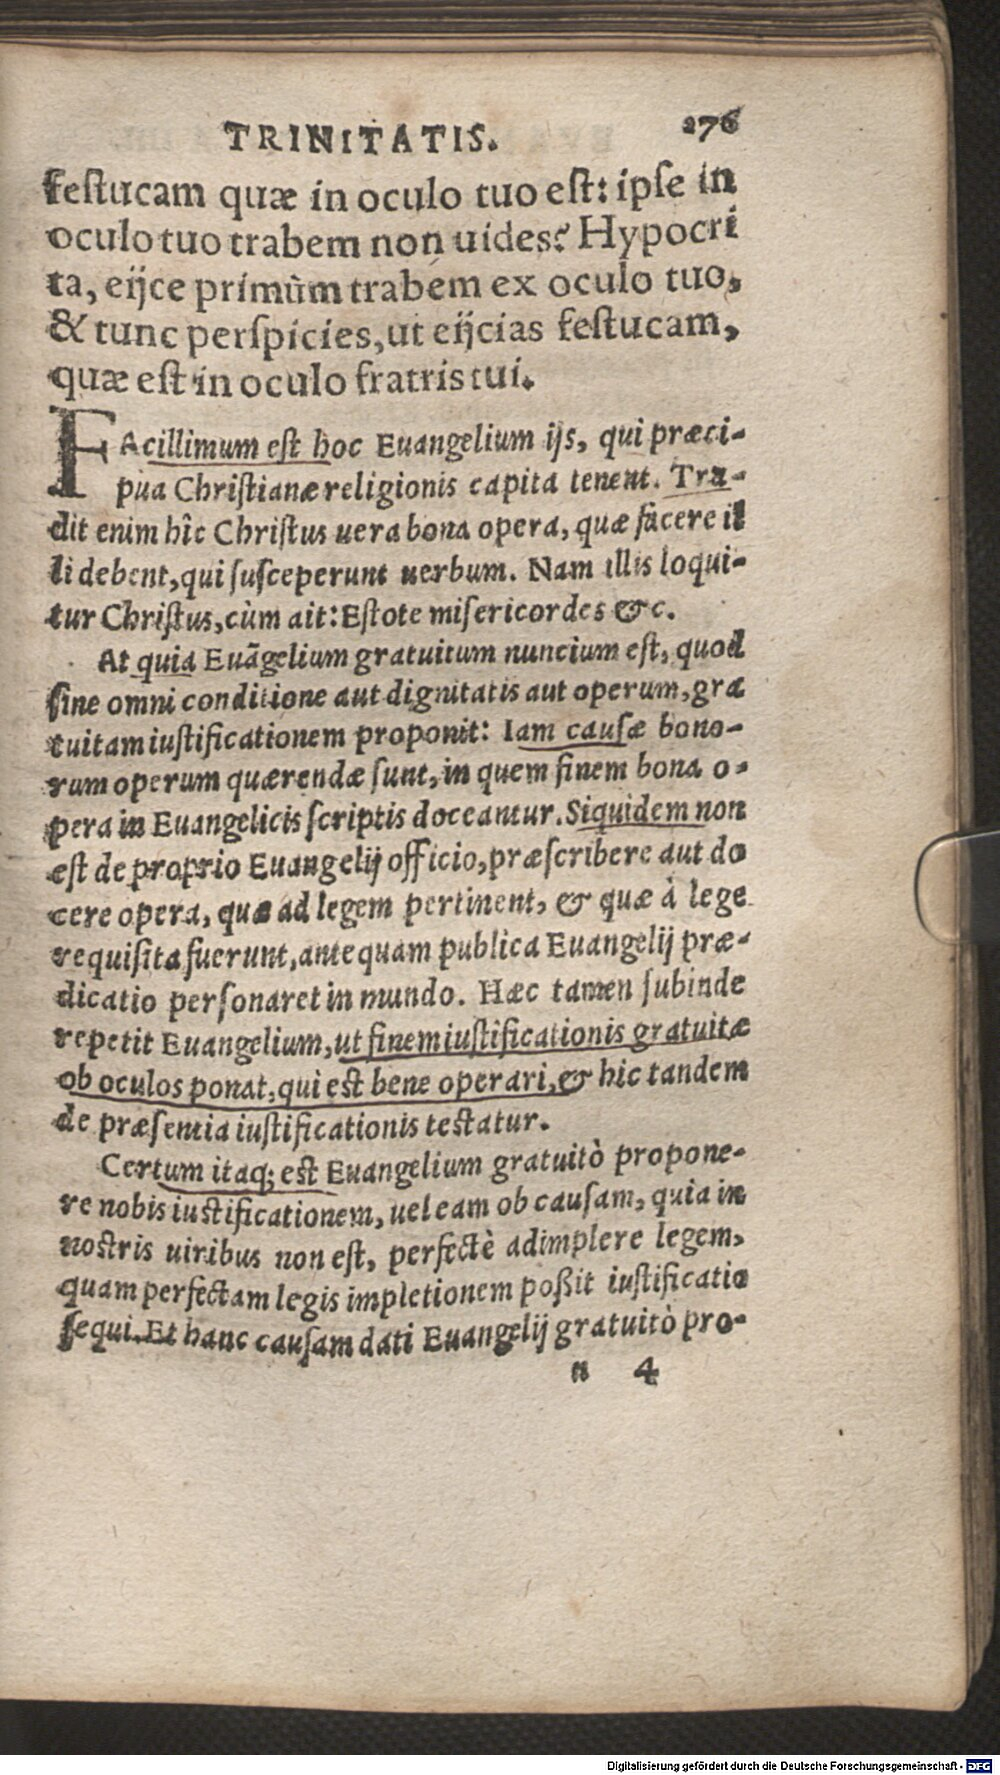 TRINITATIS. 276
festucam quæ in oculo tuo est: ipse in
oculo tuo trabem non uides? Hypocri
ta, eijce primùm trabem ex oculo tuo,
& tunc perspicies, ut eijcias festucam,
quæ est in oculo fratris tui.
FAcillimum est hoc Euangelium ijs, qui præci-
pua Christianæ religionis capita tenent. Tra-
dit enim hîc Christus uera bona opera, quæ facere il
li debent, qui susceperunt uerbum. Nam illis loqui-
tur Christus, cùm ait: Estote misericordes &c.
At quia Euãgelium gratuitum nuncium est, quod
sine omni conditione aut dignitatis aut operum, gra
tuitam iustificationem proponit: Iam causæ bono-
rum operum quærendæ sunt, in quem finem bona o-
pera in Euangelicis scriptis doceantur. Siquidem non
est de proprio Euangelij officio, præscribere aut do
cere opera, quæ ad legem pertinent, & quæ à lege
requisita fuerunt, antequam publica Euangelij præ-
dicatio personaret in mundo. Hæc tamen subinde
repetit Euangelium, ut finem iustificationis gratuitæ
ob oculos ponat, qui est bene operari, & hic tandem
de præsentia iustificationis testatur.
Certum itaq; est Euangelium gratuitò propone-
re nobis iustificationem, uel eam ob causam, quia in
nostris uiribus non est, perfectè adimplere legem,
quam perfectam legis impletionem poßit iustificatio
sequi. Et hanc causam dati Euangelij gratuitò pro-
n 4
Digitalisierung gefördert durch die Deutsche Forschungsgemeinschaft - DFG